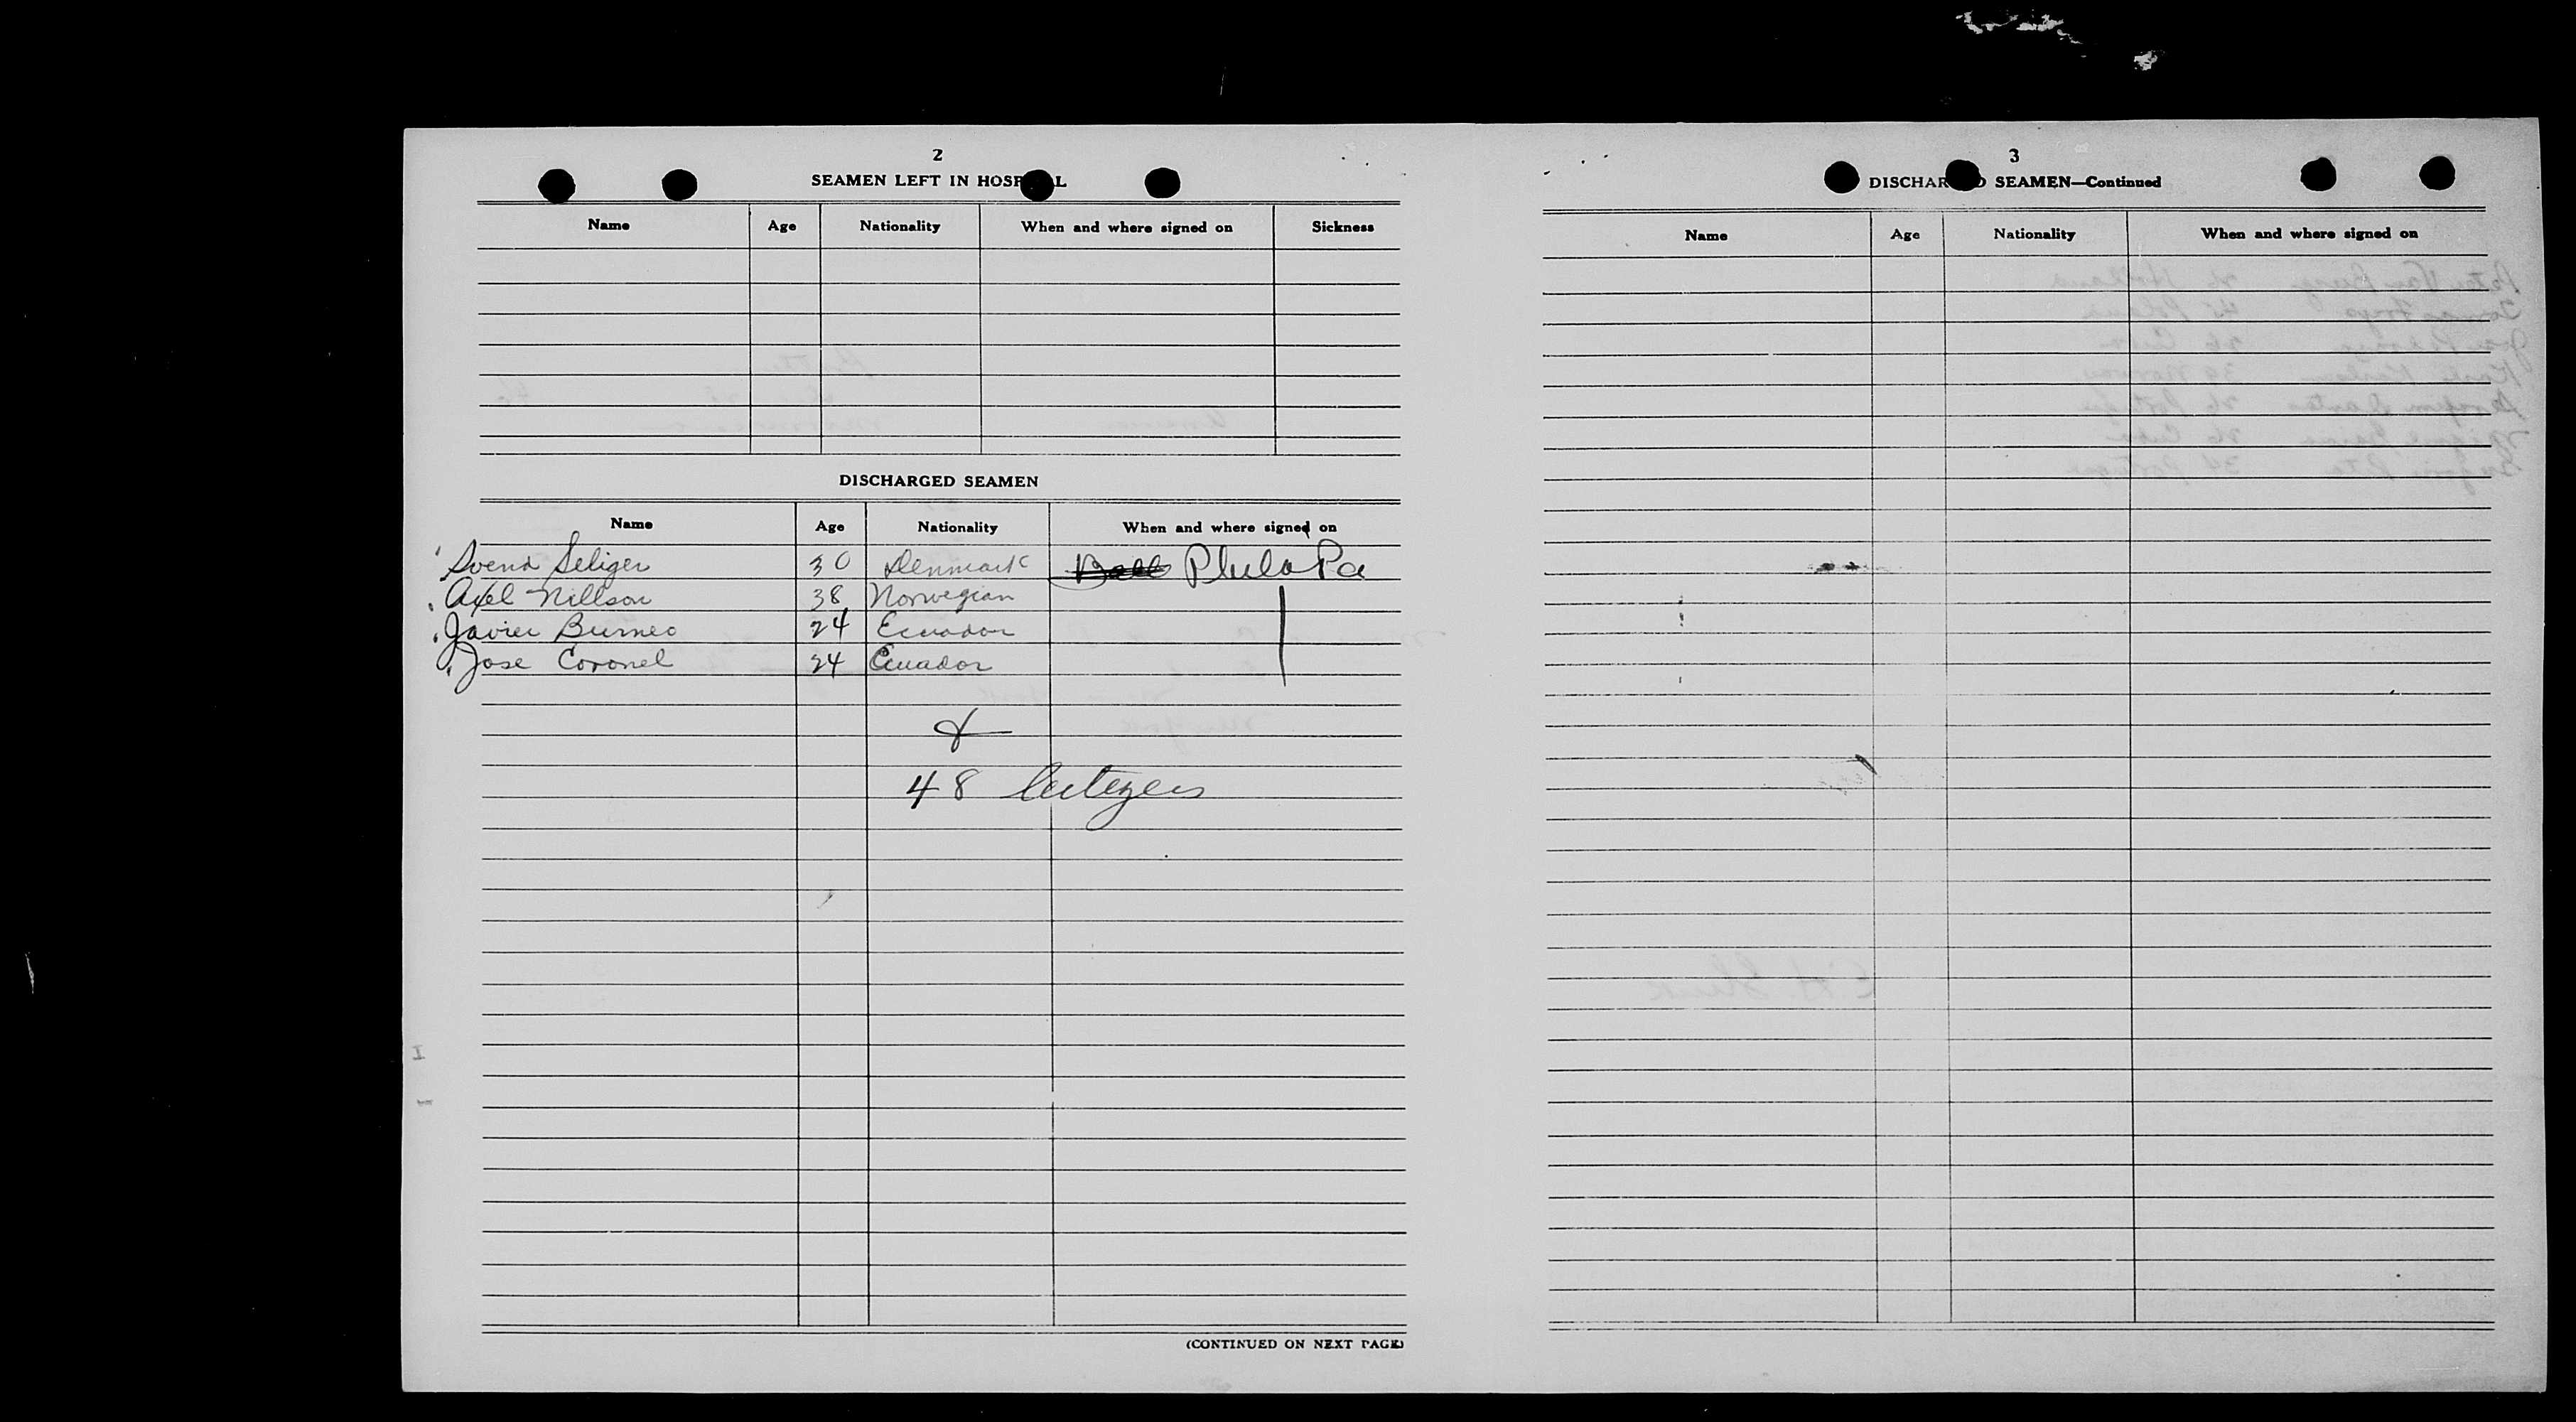 2
SEAMEN LEFT IN HOSPITAL
Name Age Nationality When and where signed on Sickness
DISCHARGED SEAMEN
Name Age Nationality When and where signed on
Svend Seliger 30 Denmark Phila Pa
Axel Nillson 38 Norwegian
Javier Burneo 24 Ecuador
Jose Coronel 24 Ecuador
48 Citizens
(CONTINUED ON NEXT PAGE)
3
DISCHARGED SEAMEN—Continued
Name Age Nationality When and where signed on